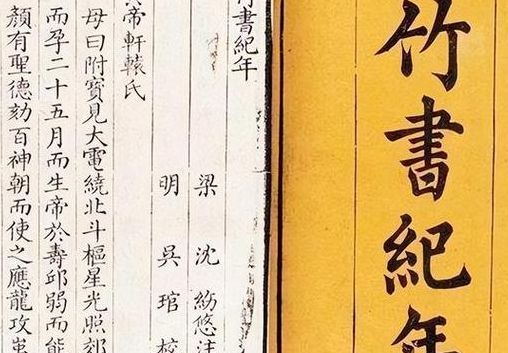 竹書紀年
竹書紀年
梁沈約附注
明吳琯校
帝軒轅氏
母曰附寶見大電繞北斗樞星光照郊
而孕二十五月而生帝於壽邱弱而能
顏有聖德劾百神朝而使之應龍攻蚩